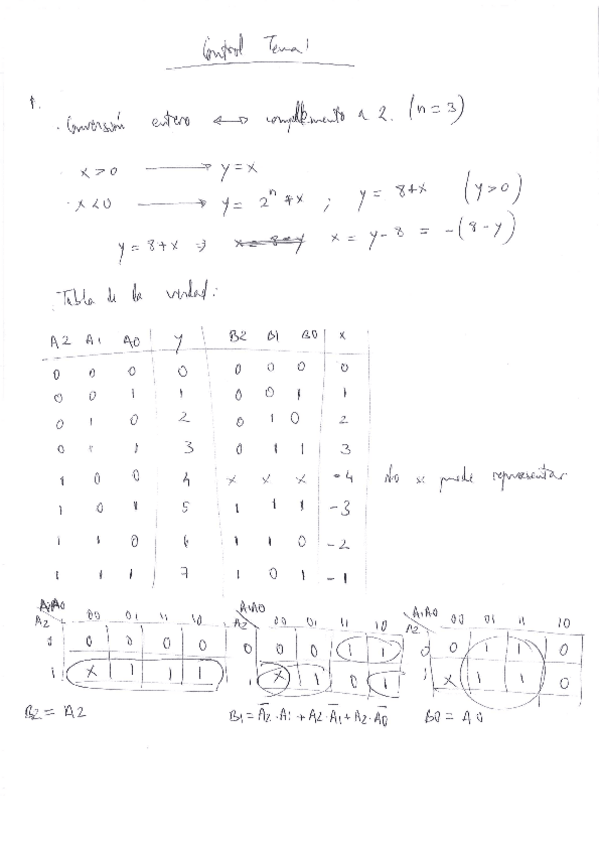 Control Tema 1
1.
· Conversión entero <-> complemento a 2. (n = 3)
· x > 0 → y = x
· x < 0 → y = 2^n + x ; y = 8 + x (y > 0)
y = 8 + x ⇒ x = 8 - y x = y - 8 = -(8 - y)
Tabla de la verdad:
A2 A1 A0 y B2 B1 B0 x
0 0 0 0 0 0 0 0
0 0 1 1 0 0 1 1
0 1 0 2 0 1 0 2
0 1 1 3 0 1 1 3
1 0 0 4 x x x -4 No se puede representar
1 0 1 5 1 1 1 -3
1 1 0 6 1 1 0 -2
1 1 1 7 1 0 1 -1
A1A0 00 01 11 10 A1A0 00 01 11 10 A1A0 00 01 11 10
A2 A2 A2
0 0 0 0 0 0 0 0 1 1 0 0 1 1 0
1 x 1 1 1 1 x 1 0 1 1 x 1 1 0
B2 = A2 B1 = A̅2̅·A1 + A2·A̅1̅ + A2·A̅0̅ B0 = A0